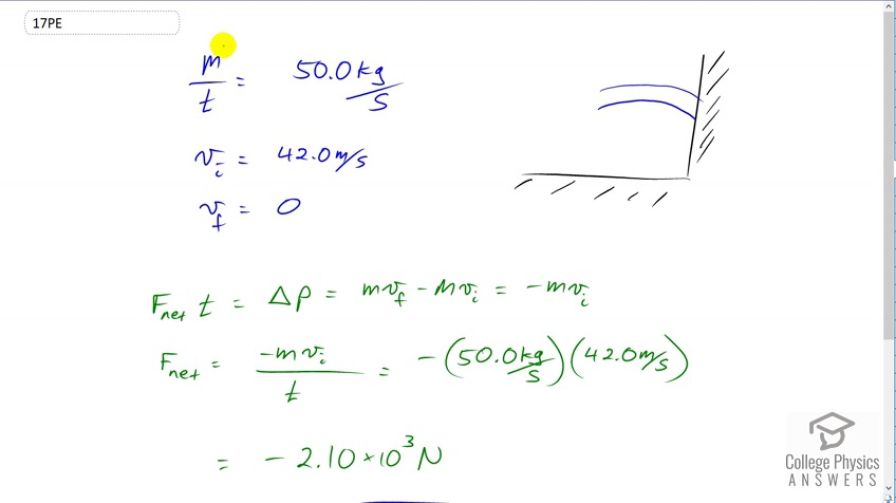 17PE
m/t = 50.0 kg/s
v_i = 42.0 m/s
v_f = 0
F_net t = Δp = mv_f - mv_i = -mv_i
F_net = -mv_i / t = -(50.0 kg/s)(42.0 m/s)
= -2.10 × 10³ N
College Physics
ANSWERS